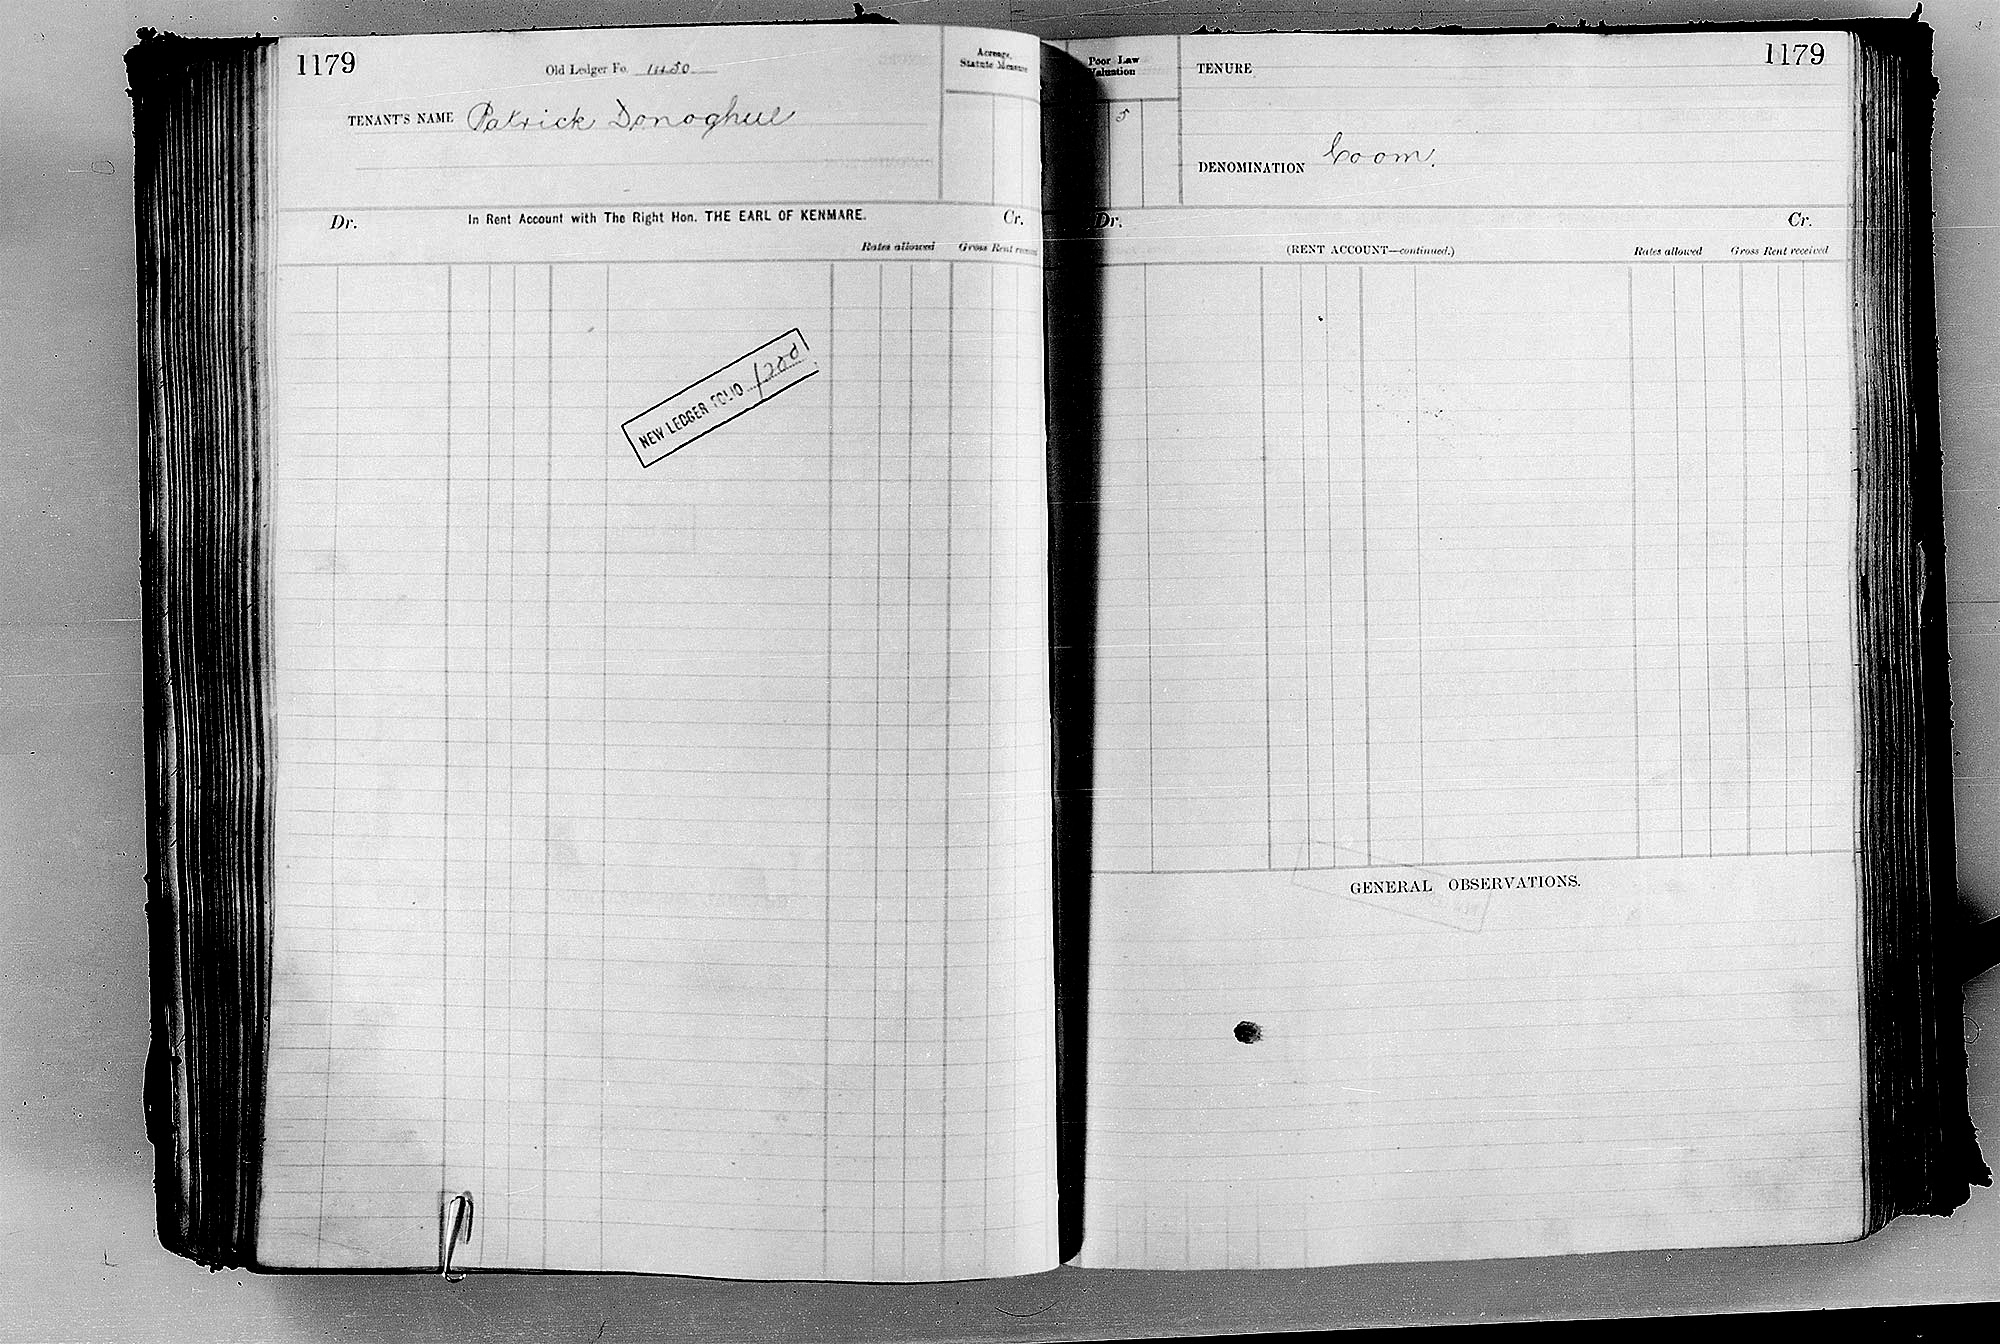 1179
Old Ledger Fo. 1450
Acreage, Statute Measure
TENANT'S NAME Patrick Donoghue
Dr. In Rent Account with The Right Hon. THE EARL OF KENMARE. Cr.
Rates allowed Gross Rent received
NEW LEDGER FOLIO 1200
Poor Law Valuation
5
TENURE
1179
DENOMINATION Coom.
Dr. Cr.
(RENT ACCOUNT—continued.) Rates allowed Gross Rent received
GENERAL OBSERVATIONS.